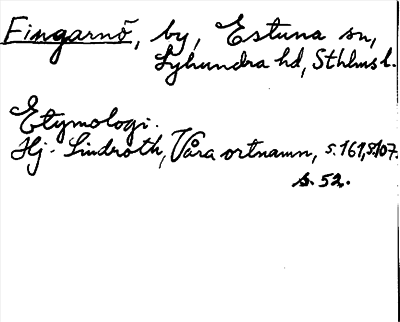 Fingarnö, by, Estuna sn,
Lyhundra hd, Sthlms l.
Etymologi.
Hj. Lindroth, Våra ortnamn, s. 161, s. 107.
s. 52.